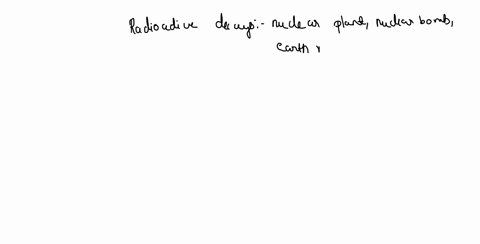 Radioactive decay:- nuclear plant, nuclear bomb,
earth